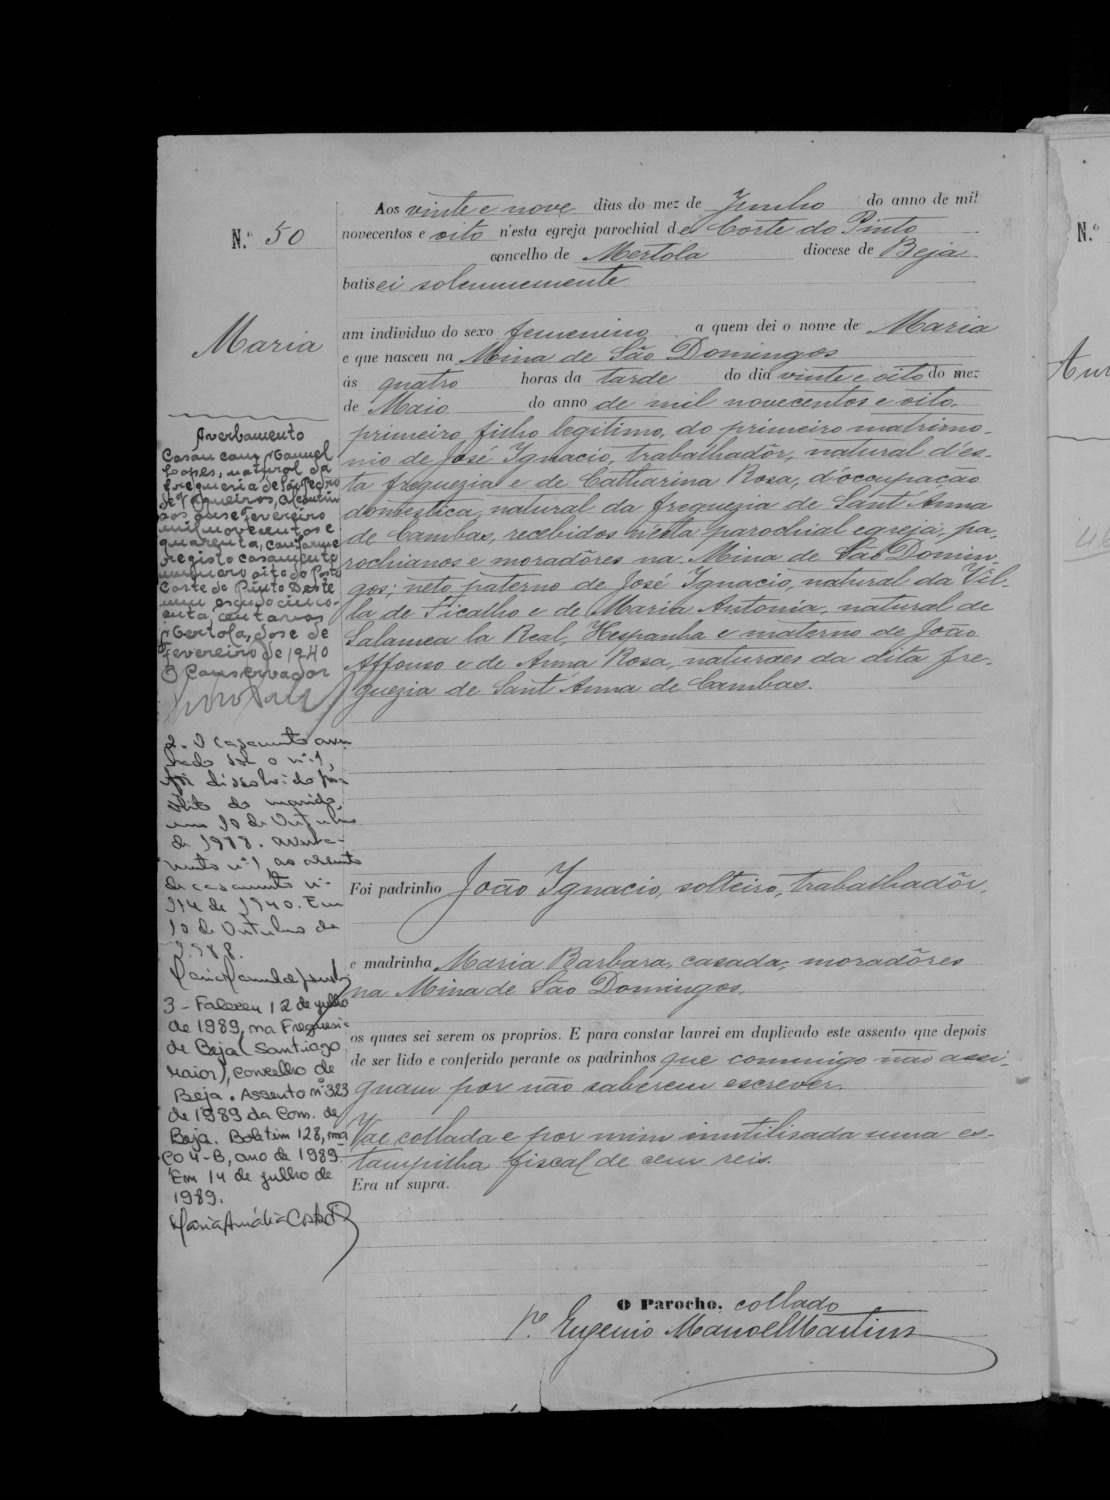 N.º 50
Maria
Aos vinte e nove dias do mez de Junho do anno de mil
novecentos e oito n'esta egreja parochial de Corte do Pinto
concelho de Mertola diocese de Beja
batisei solemnemente
um individuo do sexo femenino a quem dei o nome de Maria
e que nasceu na Mina de São Domingos
ás quatro horas da tarde do dia vinte e oito do mez
de Maio do anno de mil novecentos e oito,
primeiro filho legitimo, do primeiro matrimo-
nio de José Ignacio, trabalhadôr, natural d'es-
ta freguezia e de Catharina Rosa, d'occupação
domestica, natural da freguezia de Sant'Anna
de Cambas, recebidos n'esta parochial egreja, pa-
rochianos e moradôres na Mina de São Domin-
gos; neto paterno de José Ignacio, natural da Vil-
la de Ficalho e de Maria Antonia, natural de
Salamea la Real, Hespanha e materno de João
Affonso e de Anna Rosa, naturaes da dita fre-
guezia de Sant'Anna de Cambas.
Foi padrinho João Ignacio, solteiro, trabalhadôr,
e madrinha Maria Barbara, casada, moradôres
na Mina de São Domingos,
os quaes sei serem os proprios. E para constar lavrei em duplicado este assento que depois
de ser lido e conferido perante os padrinhos que commigo não assi-
gnam por não saberem escrever.
Vae collada e por mim inutilisada uma es-
tampilha fiscal de cem reis.
Era ut supra.
O Parocho, collado
P.e Eugenio Manoel Martins
Averbamento
Casou com Manuel
Lopes, natural da
freguesia de São Pedro
de Vaqueiros, Alcoutim
aos onze Fevereiro
mil novecentos e
quarenta, conforme
registo casamento
numero oito do Posto
Corte do Pinto Deste
um escudo cinco-
enta centavos
Mertola, dose de
Fevereiro de 1940
O Conservador
2. O casamento aver-
bado sob o nº 1,
foi dissolvido por
óbito do marido,
em 10 de Outubro
de 1988. Averba-
mento nº 1 ao assento
de casamento nº
114 de 1940. Em
10 de Outubro de
1988.
3 - Faleceu 12 de julho
de 1989, na Freguesia
de Beja (Santiago
Maior), concelho de
Beja. Assento nº 323
de 1989 da Cons. de
Beja. Boletim 128, maç
co 4-B, ano de 1989.
Em 14 de julho de
1989.
Maria Amália Costa
N.º